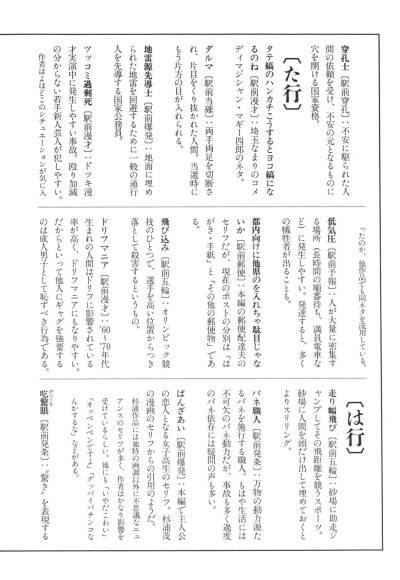 穿孔士〔駅前穿孔〕:不安に駆られた人
間の依頼を受け、不安の元となるものに
穴を開ける国家資格。
〔た行〕
タテ縞のハンカチこうするとヨコ縞にな
るのね〔駅前漫才〕:埼玉なまりのコメ
ディマジシャン・マギー四郎のネタ。
ダルマ〔駅前当確〕:両手両足を切断さ
れ、片目をくり抜かれた人間。当選時に
もう片方の目が入れられる。
地雷源先導士〔駅前爆発〕:地面に埋め
られた地雷を回避するために一般の通行
人を先導する国家公務員。
ツッコミ過剰死〔駅前漫才〕:ドツキ漫
才実演中に発生しやすい事故。殴り加減
の分からない若手新人芸人が犯しやすい。
作者はよほどこのシチュエーションが気に入
ったのか、他作品でも同ネタを流用している。
低気圧〔駅前予報〕:人が大量に密集す
る場所(長時間の順番待ち、満員電車な
ど)に発生しやすい。発達すると、多く
の犠牲者が出ることも。
都内向けに他県のを入れちゃ駄目じゃな
いか〔駅前郵便〕:本編の郵便配達夫の
セリフだが、現在のポストの分別は「は
がき・手紙」と「その他の郵便物」であ
る。
飛び込み〔駅前五輪〕:オリンピック競
技のひとつで、選手を高い位置からつき
落として殺害するというもの。
ドリフマニア〔駅前漫才〕:'60〜'70年代
生まれの人間はドリフに影響されている
率が高く、ドリフマニアにもなりやすい。
だからといって他人にギャグを強要する
のは成人男子として恥ずべき行為である。
〔は行〕
走り幅飛び〔駅前五輪〕:砂場に助走ジ
ャンプしてその飛距離を競うスポーツ。
砂場に人間を頭だけ出して埋めておくと
よりスリリング。
バネ職人〔駅前発条〕:万物の動力源た
るバネを施行する職人。もはや生活には
不可欠のバネ動力だが、事故も多く過度
のバネ依存には疑問の声も多い。
ばんざぁい〔駅前爆発〕:本編で主人公
の恋人となる女子高生のセリフ。杉浦茂
の漫画のセリフからの引用のようだ。
杉浦作品には独特の画調以外に不思議なニュ
アンスのセリフが多く、作者はかなり影響を
受けているらしい。他にも「いやだこわい」
「オッペンペンですよ」「グッパイパチンコな
んかするな」などがある。
吃驚眼〔駅前発条〕:"驚き"を表現する